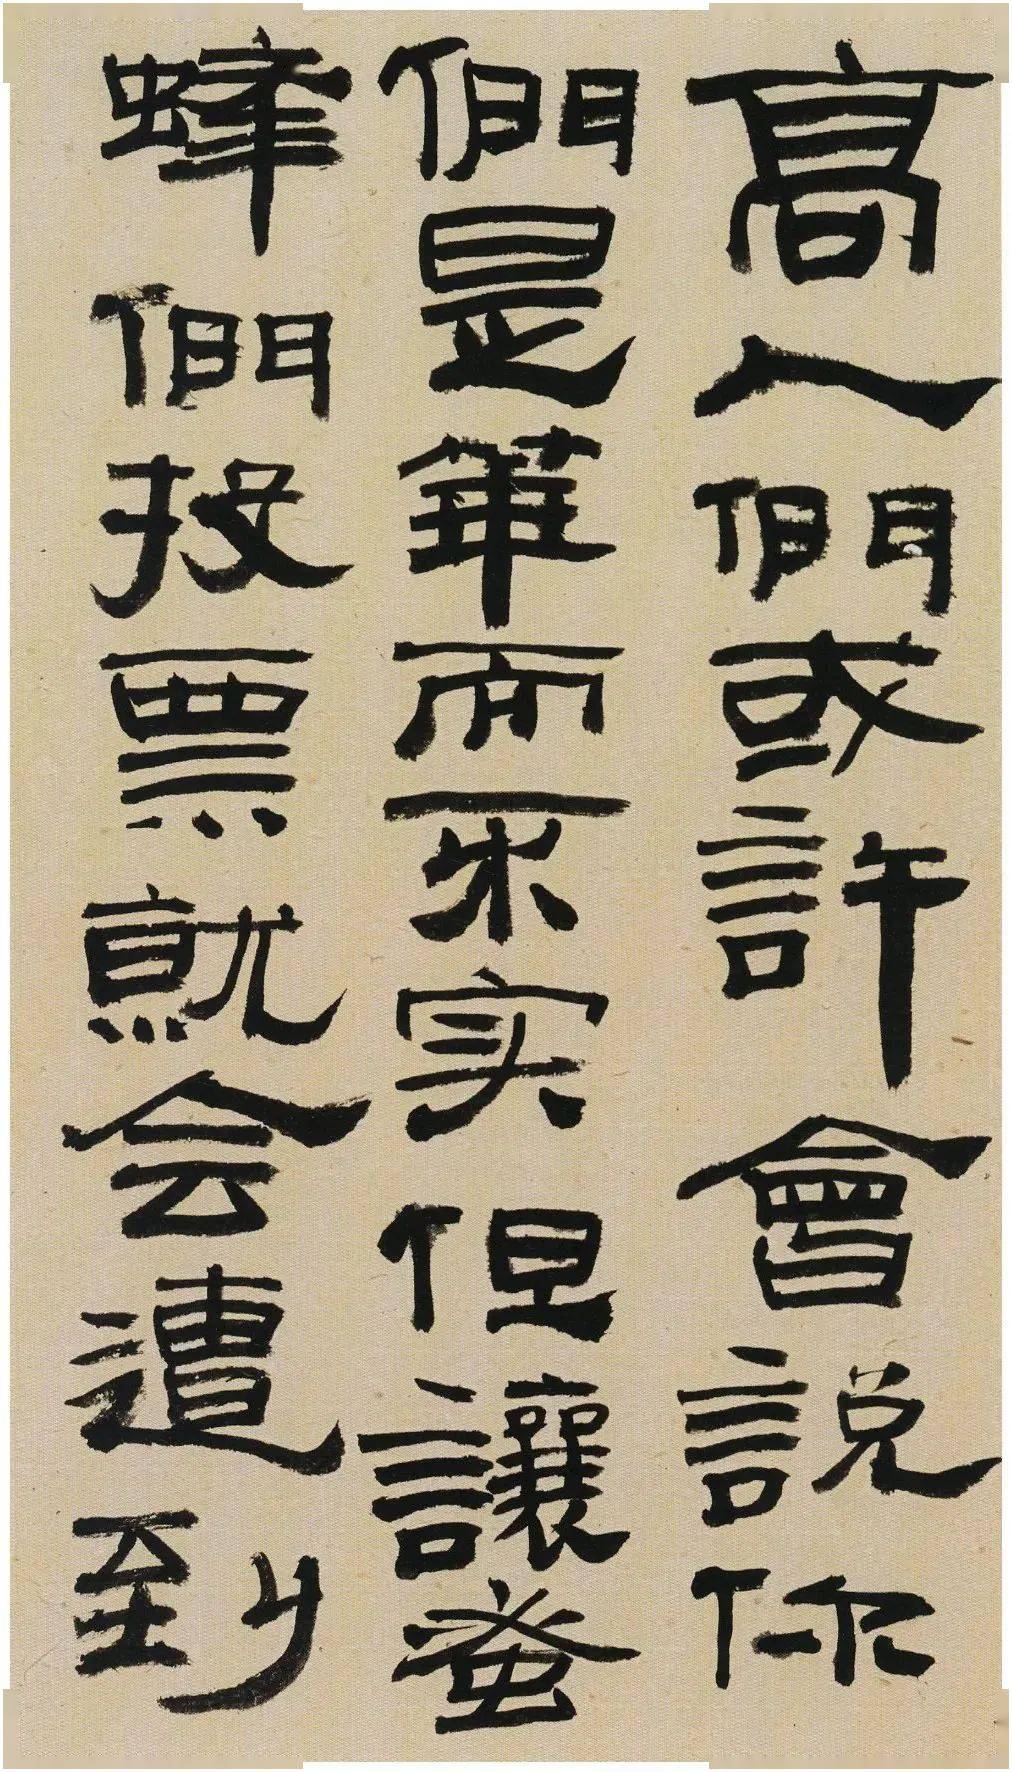 高人們或許會說你
們是華而不实但讓
蜂們投票就会遭到